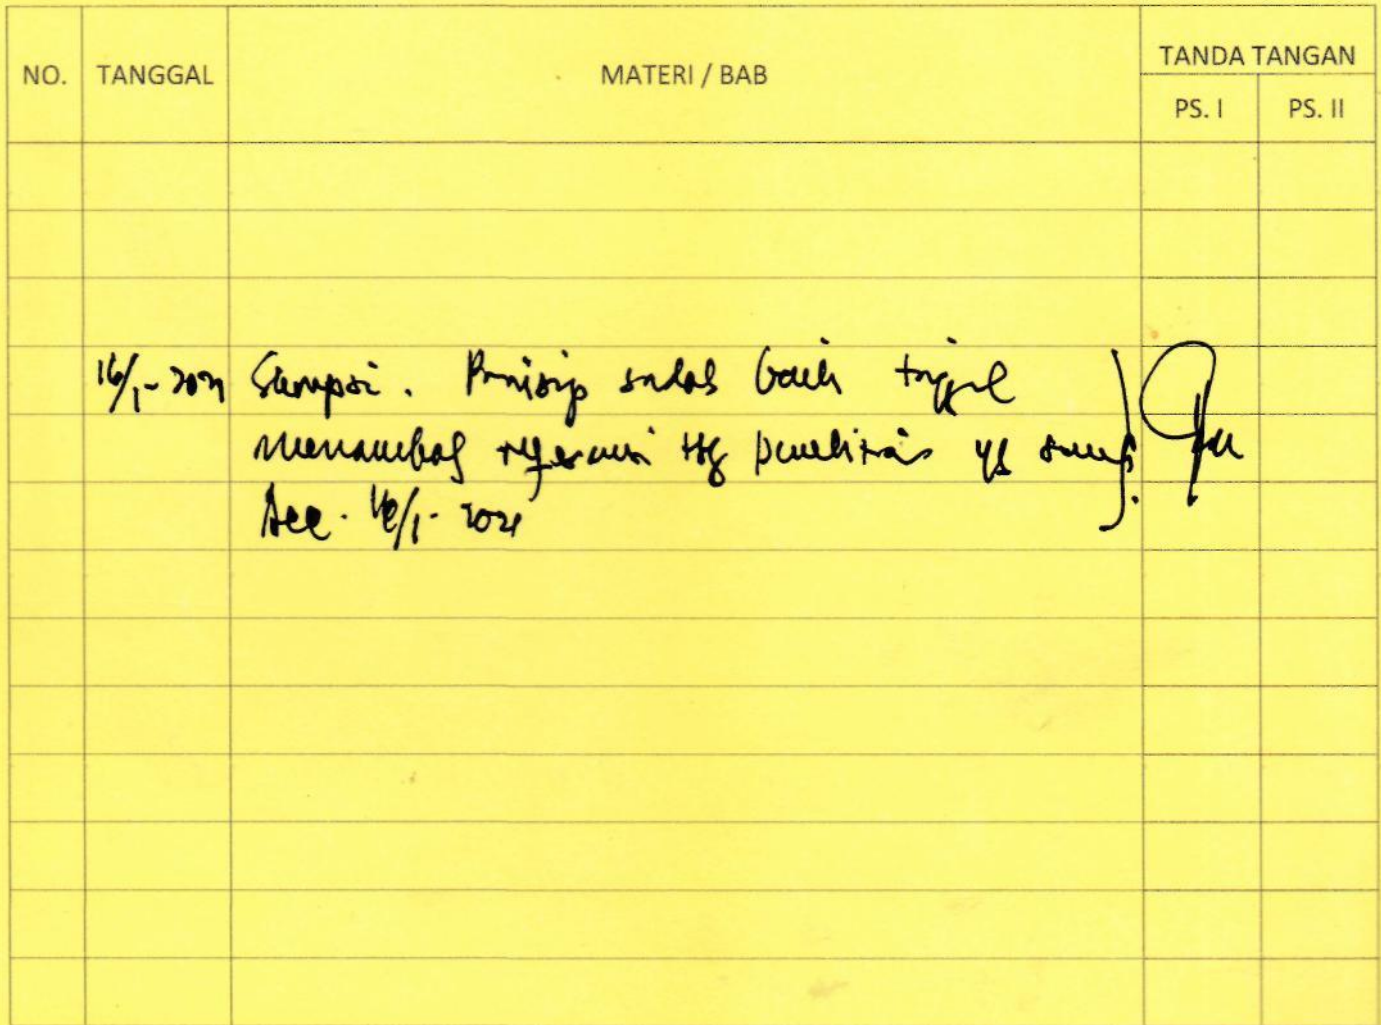 NO. TANGGAL MATERI / BAB TANDA TANGAN
PS. I PS. II
16/1-2021 Skripsi. Prinsip sudah baik tinggal
menambah referensi ttg penelitian yg
Acc. 16/1-2021